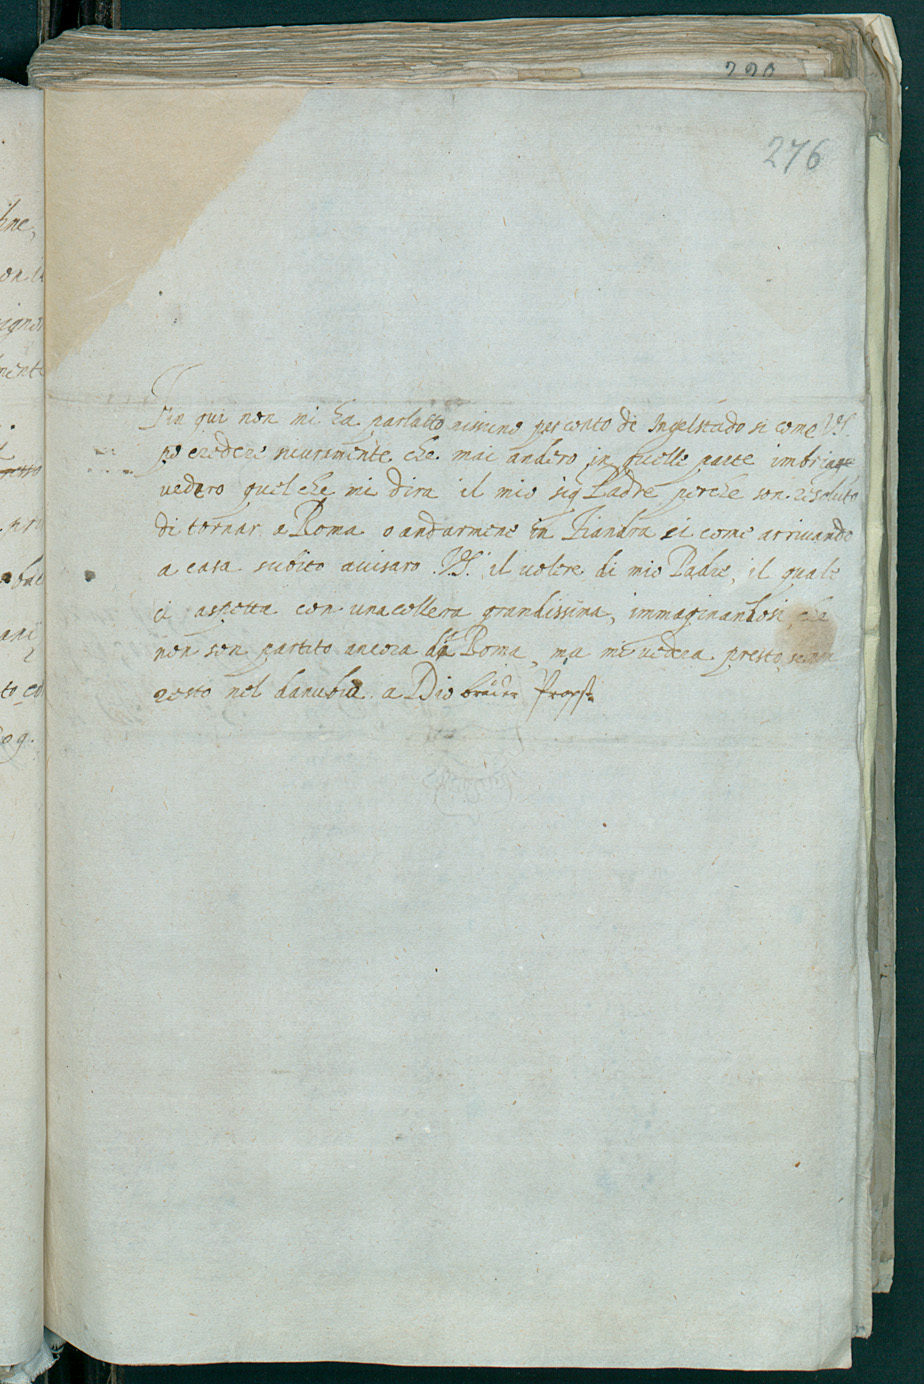 220
276
Fin qui non mi ha parlatto nissuno per conto di Ingelstado si come VS.
po credere sicurimente che mai andero in quelle parte imbriage
vedero quel che mi dira il mio sig Padre perche son risoluto
di tornar a Roma o andarmene in Fiandra si come arrivando
a casa subito avisaro VS. il volere di mio Padre, il quale
ci aspetta con una collera grandissima, immaginandosi, che
non son partito ancora da Roma, ma mi vedera presto, se non
resto nel danubia a Dio